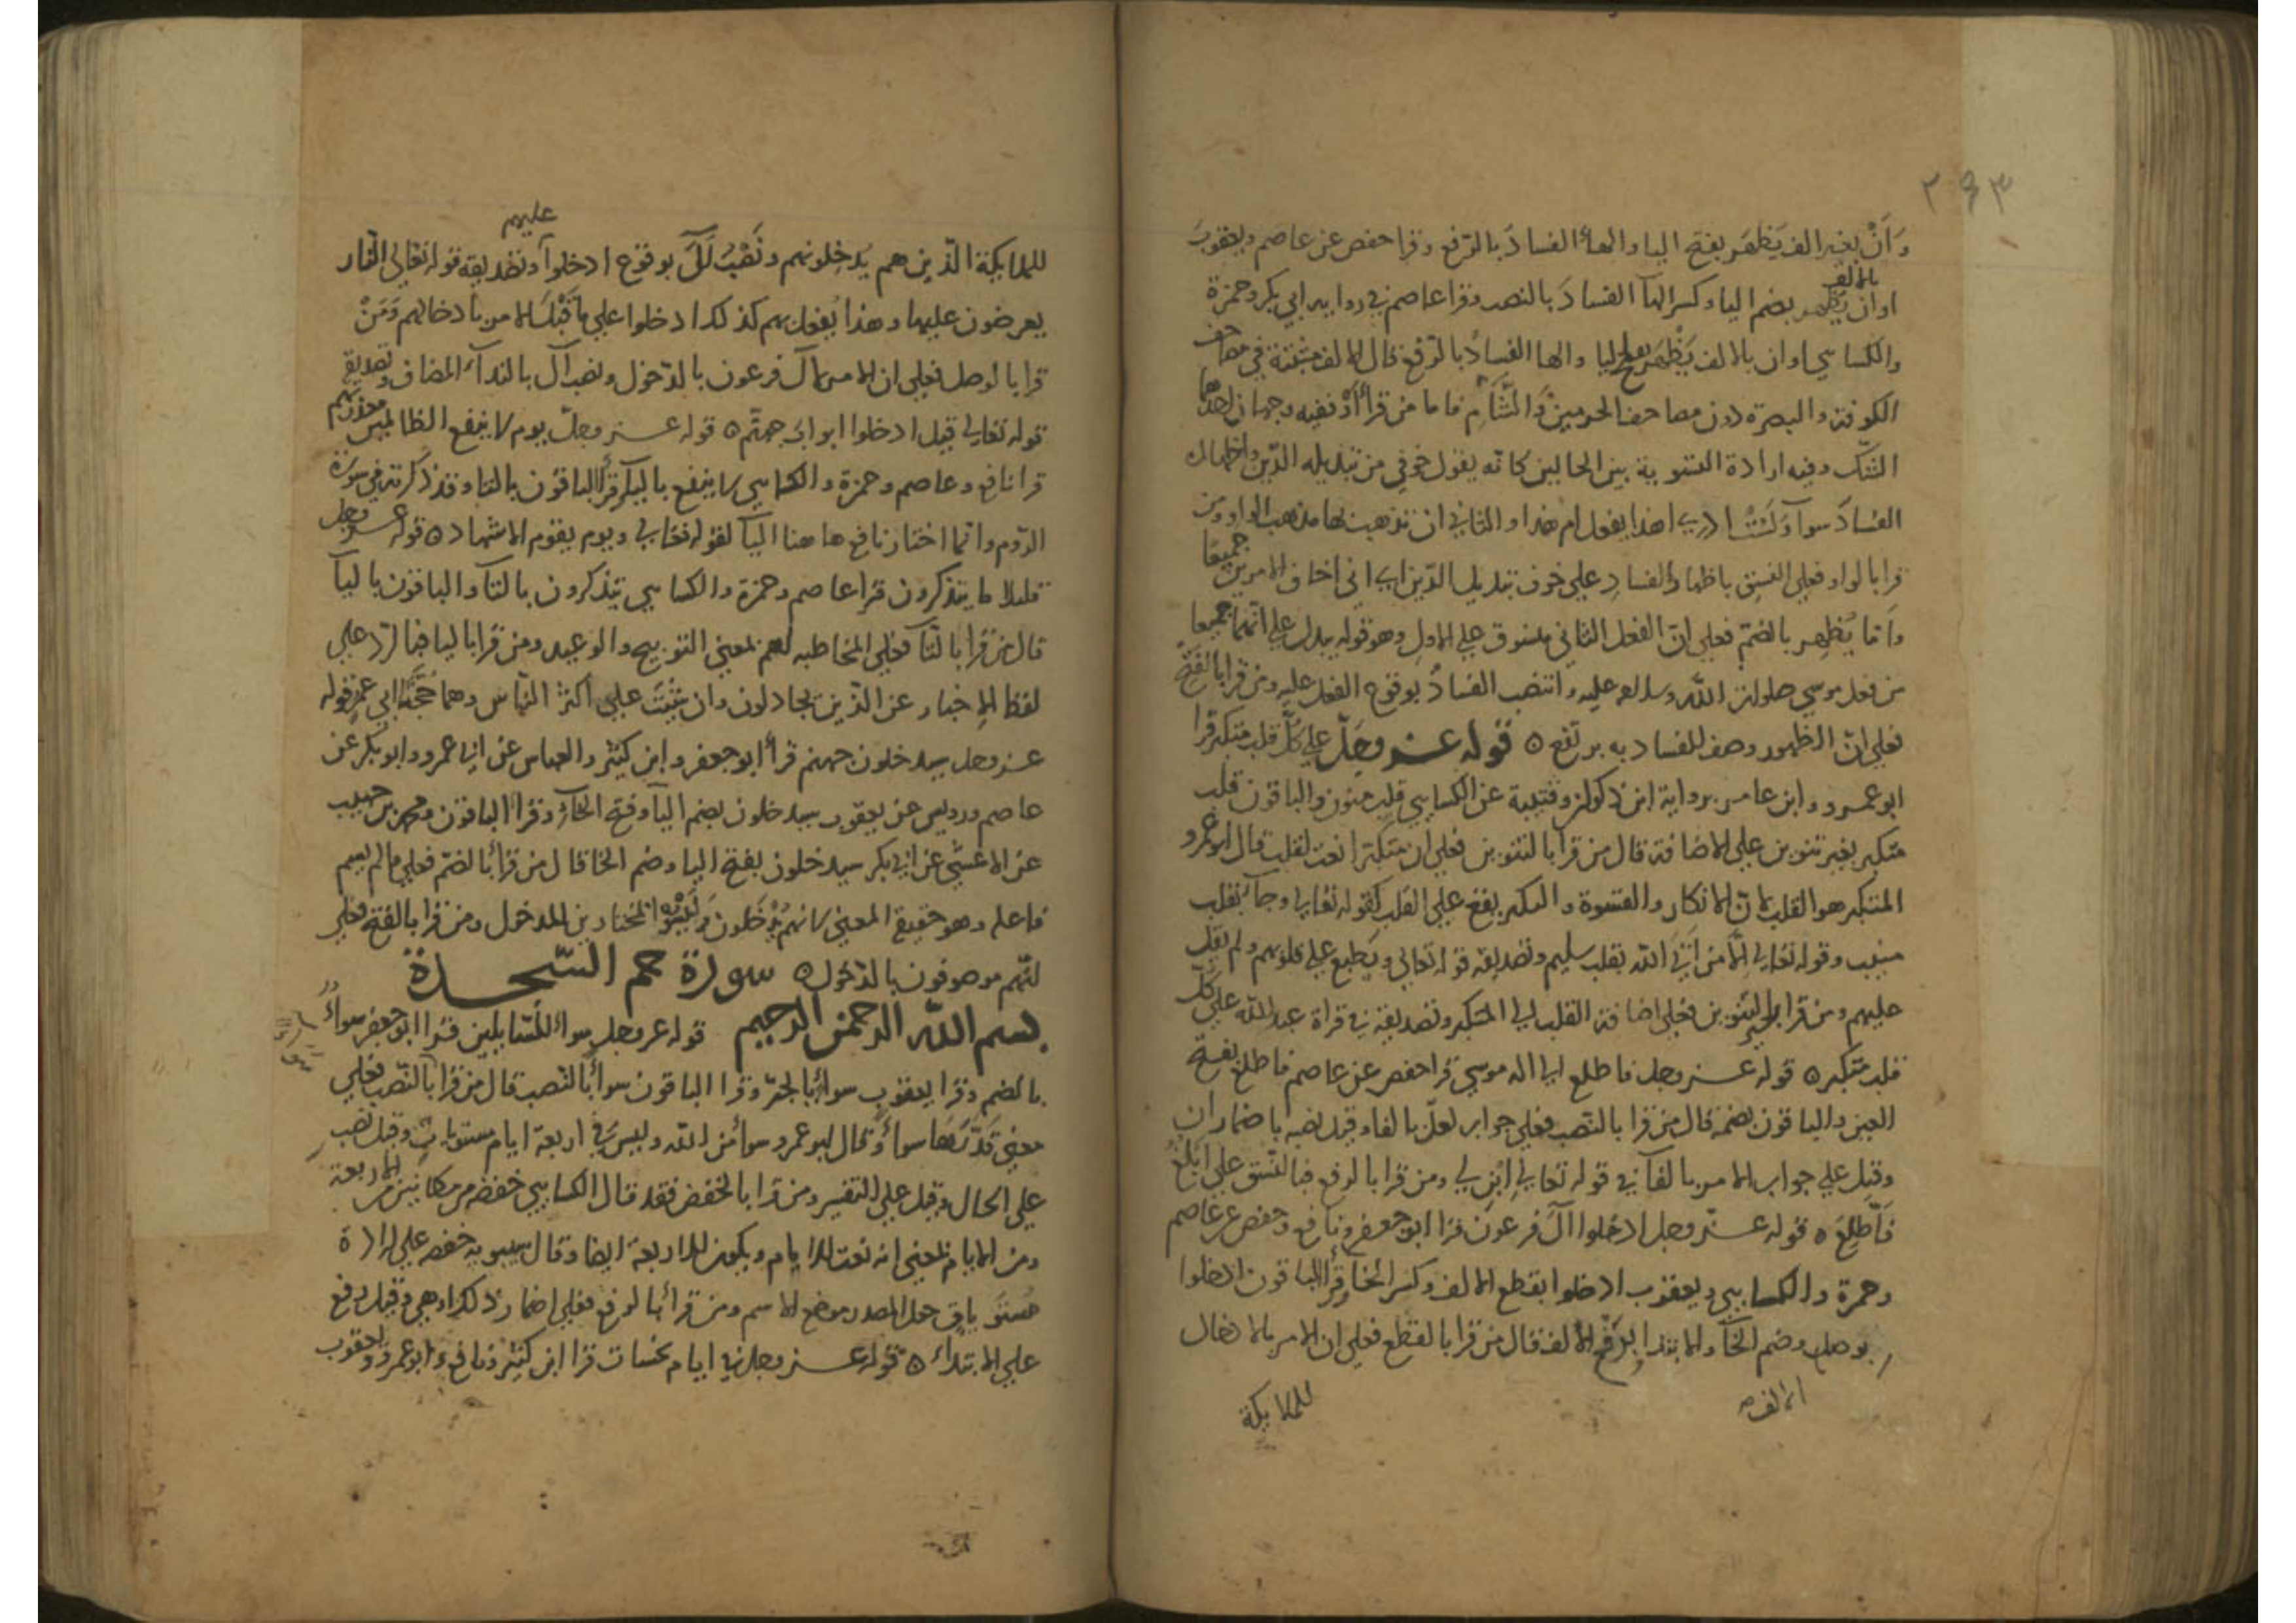 ٢٤٣
وَأَنْ بغير الف يَظهَر بفتح اليا والهاء الفسادُ بالرّفع وقرا حفص عن عاصم ويعقوبَ
بالالف
او ان يُظهر بضم اليا وكسر الهآ الفسادَ بالنصب وقرا عاصم في رواية ابي بكر وحمزة
والكسايي او ان بالالف يَظْهَر بفتح اليا والها الفسادُ بالرّفع قال الالف مثبتة في مصاحف
الكوفة والبصرة دون مصاحف الحرمين والشّأم فاما من قرأ أَوْ ففيه وجهان احدهما
الشّك وفيه ارادة التسوية بين الحالين كانّه يقول خوفي من تبديله الدّين واظهاره
الفسادَ سوآ وَلَسْتُ ادري اهذا يفعل ام هذا والثاني ان تذهب بها مذهب الواو ومن
قرا بالواو فعلي النسق باظهار الفسادِ علي خوف تبديل الدّين اي اني اخاف الامرين جميعًا
وأمّا يُظهِر بالضمّ فعلي انّ الفعل الثاني منسوق علي الاول وهو قوله يبدل علي انّهما جميعًا
من فعل موسي صلوات اللّه وسلامه عليه وانتصب الفسادُ بوقوع الفعل عليه ومن قرا بالفتح
فعلي انّ الظهور وصف للفساد به يرتفع ه قوله عز وجلّ علي كلّ قلب متكبر قرا
ابو عمرو وابن عامر برواية ابن ذكوان وقتيبة عن الكسايي قلب منون والباقون قلب
متكبر بغير تنوين علي الاضافة قال من قرا بالتنوين فعلي ان متكبرا نعت لقلب قال ابو عمرو
المتكبر هو القلب لانّ الانكار والقسوة والتكبر يقع علي القلب كقوله تعالي وجآء بقلب
منيب وقوله تعالي إلّا من أتي اللّه بقلب سليم وتصديقه قوله تعالي ويَطبع علي قلوبهم ولم يقل
عليهم ومن قرا بغير التنوين فعلي اضافة القلب الي المتكبر وتصديقه في قراة عبد اللّه علي كلّ
قلب متكبر ه قوله عز وجل فاطلع الي اله موسي قرا حفص عن عاصم فاطلعَ بفتح
العين والباقون بضمه قال من قرا بالنّصب فعلي جواب لعلّ بالفاء وقيل نصبه باضمار ان
وقيل علي جواب الامر بالفآ في قوله تعالي ابنِ لي ومن قرا بالرفع فبالنّسق علي ابلغُ
فأطّلعُ ه قوله عزّ وجل ادخلوا آلَ فرعون قرا ابو جعفر ونافع وحفص عن عاصم
وحمزة والكسايي ويعقوب ادخلوا بقطع الالف وكسر الخا وقرأ الباقون ادخلوا
بوصل وضم الخآ والابتدا برفع الالف قال من قرا بالقطع فعلي ان الامر بالادخال
الالف
للملايكة
عليهم
للملايكة الّذين هم يُدخِلونهم ونَصْبُ آلَ بوقوع ادخلوا وتصديقه قوله تعالي النّار
يعرضون عليها وهذا يُفعل بهم كذلك ادخلوا علي ما قَبْلَه الامر بادخالهم وَمَنْ
قرا بالوصل فعلي ان الامر لآل فرعون بالدّخول ونصب آل بالندآء المضاف وتصديقه
قوله تعالي قيل ادخلوا ابواب جهنّم ه قوله عز وجلّ يوم لا ينفع الظالمين معذرتهم
قرا نافع وعاصم وحمزة والكسايي لا ينفع باليآ وقرأ الباقون بالتا وقد ذكرته في سورة
الرّوم وانّما اختار نافع هاهنا اليآ لقوله تعالي ويوم يقوم الاشهاد ه قوله عز وجل
قليلا ما يتذكرون قرا عاصم وحمزة والكسايي تتذكرون بالتآ والباقون باليآ
قال من قرا بالتّآ فعلي المخاطبة لهم لمعني التوبيخ والوعيد ومن قرا باليا فبالرّد علي
لفظ الإخبار عن الذّين يجادلون وان ثبتَتَ علي اكثر النّاس وهما حُجّتا ابي عمرو قوله
عز وجل سيدخلون جهنم قرأ ابو جعفر وابن كثير والعباس عن ابي عمرو وابو بكر عن
عاصم ورويس عن يعقوب سيدخلون بضم اليآ وفتح الخآءِ وقرأ الباقون ومحمد بن حبيب
عن الاعشي عن ابي بكر سيدخلون بفتح اليا وضم الخا قال من قرأ بالضمّ فعلي ما لم يسم
فاعله وهو حقيقة المعني لانهم يُدْخَلون وَلَيْسُوا المختارين للدخول ومن قرا بالفتح فعلي
انّهم موصوفون بالدّخول ه سورة حم السّجدة
بسم اللّه الرحمن الرحيم قوله عز وجل سواء للسّايلين قرا ابو جعفر سواءٌ
بالضم وقرا يعقوب سواءٍ بالجرّ وقرا الباقون سواءً بالنّصب قال من قرا بالنّصب فعلي
معني قَدّرَهَا سواءً وَقال ابو عمرو سواء من اللّه وليسَ في اربعة ايام مستويات وقيل نصب
علي الحال وقيل علي التفسير ومن قرا بالخفض فقد قال الكسايي خفضه من مكانين من الاربعة
ومن الايام لمعني انه نعت للايام ويكون للاربعة ايضا وقال سيبويه خفضه علي ارادة
مُستويات جعل المصدر موضع الاسم ومن قرأ بالرفع فعلي اضمار ذلك او هي وقيل رفع
علي الابتداء ه قوله عز وجل في ايام نحسات قرا ابن كثير ونافع وابو عمرو ويعقوب